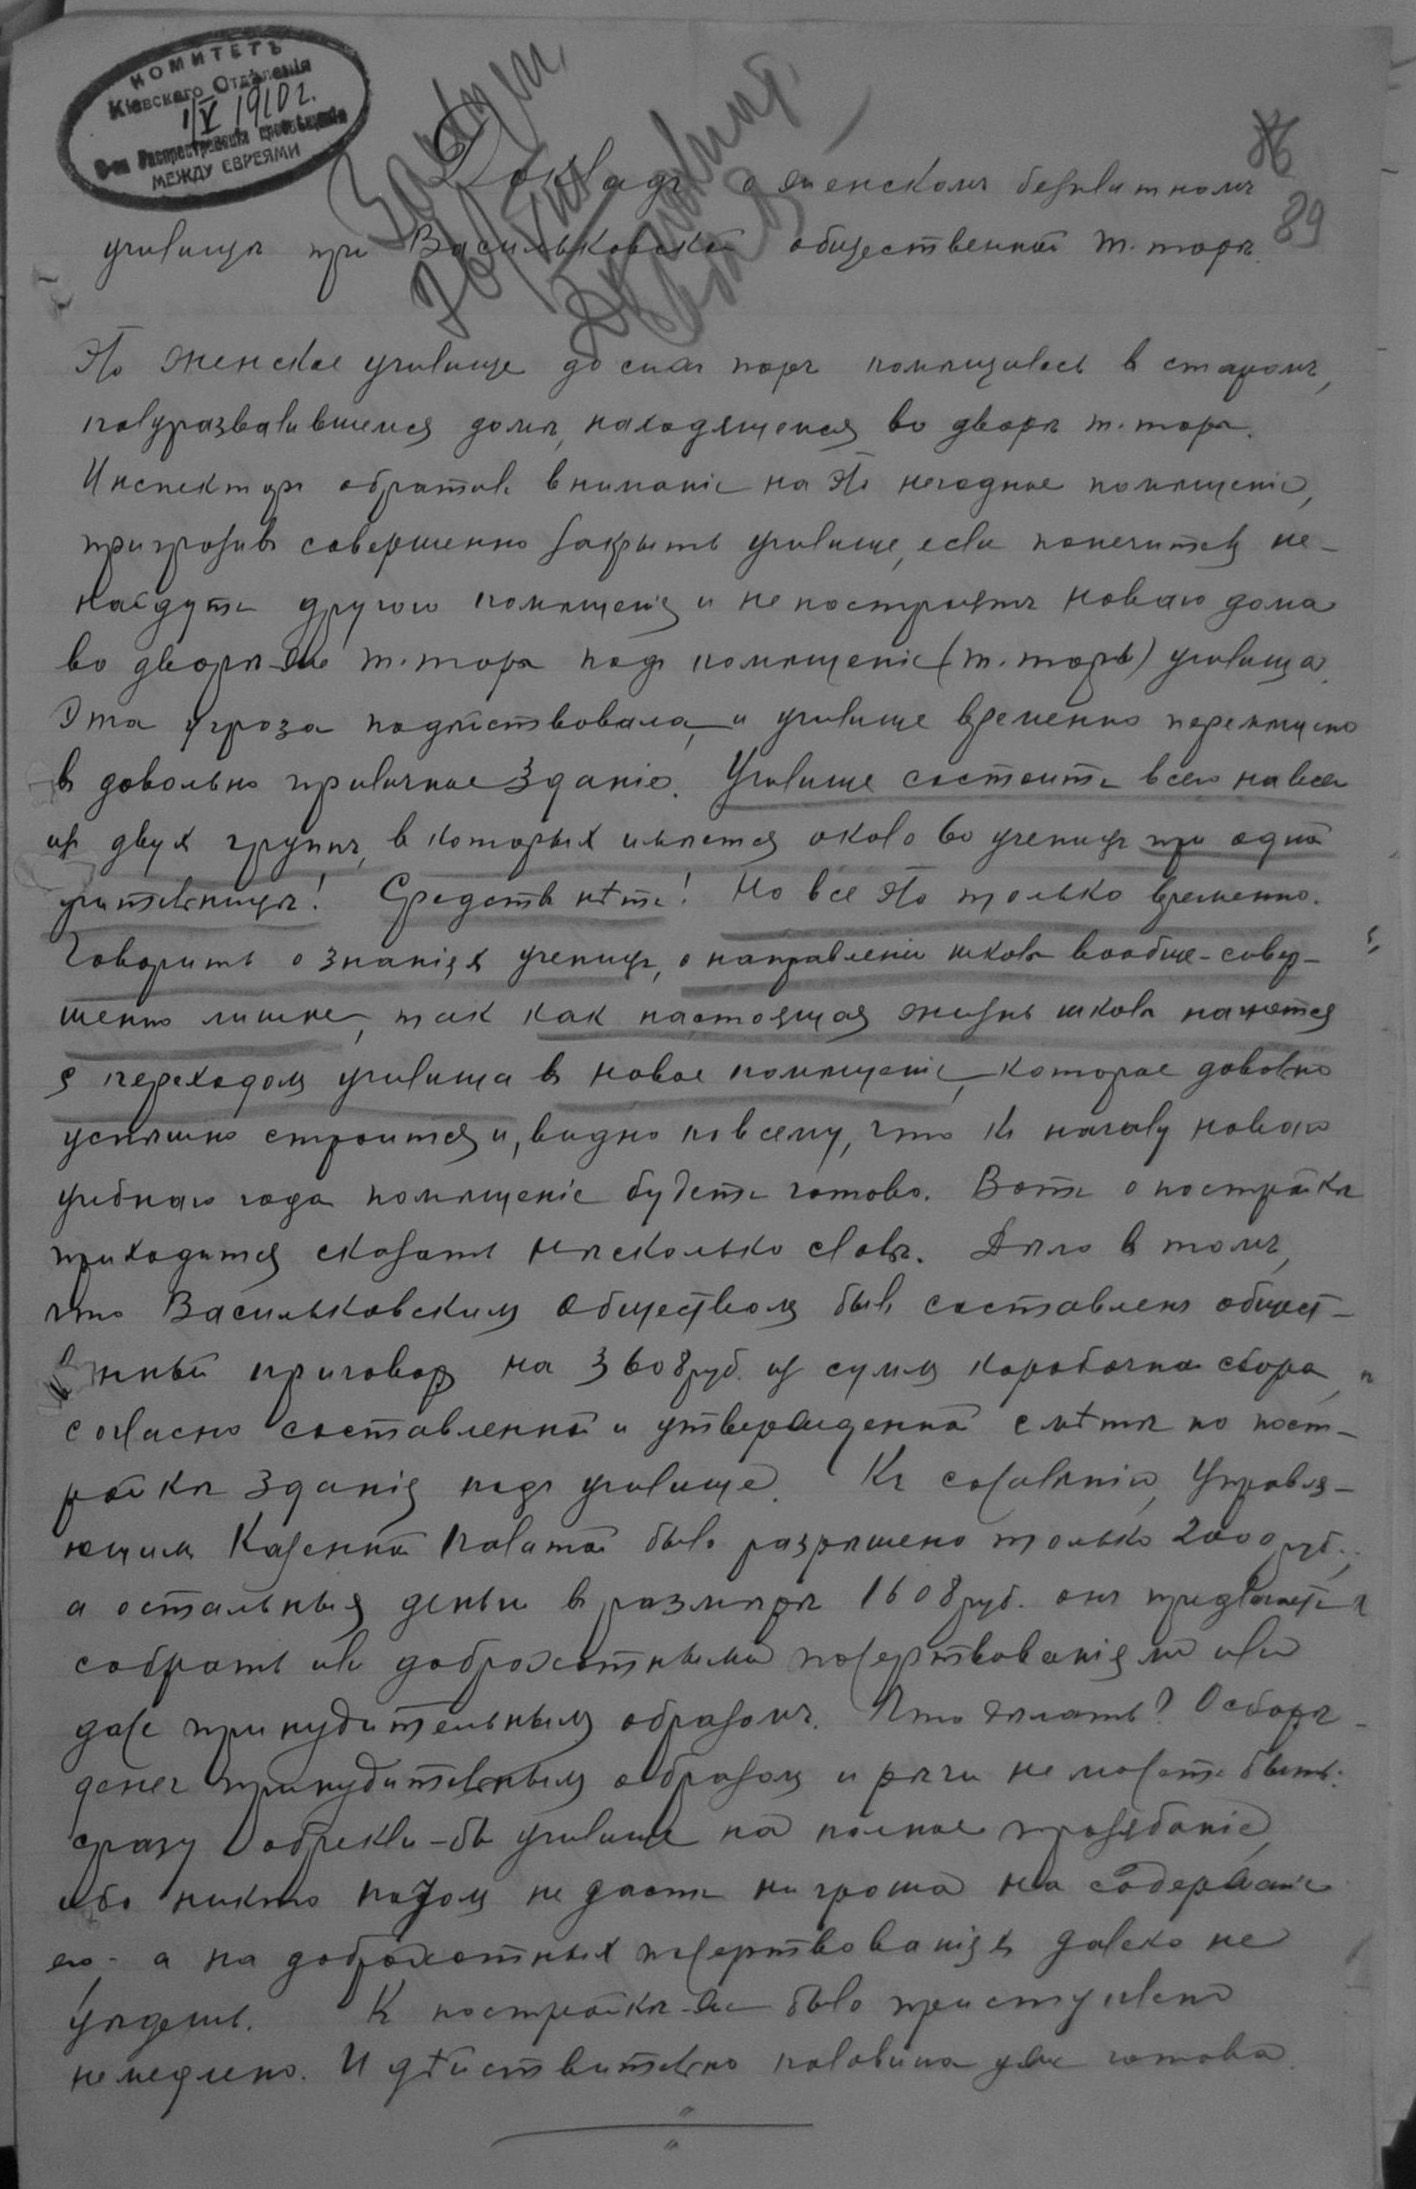 КОМИТЕТЪ
Кіевскаго Отдѣленія
1/V 1910 г.
О-ва Распространенія просвѣщенія
МЕЖДУ ЕВРЕЯМИ
89
Докладъ о женскомъ безплатномъ
училищѣ при Васильковской общественной т. торѣ.
Это женское училище до сихъ поръ помѣщалось в старомъ,
полуразвалившемся домѣ, находящемся во дворѣ т. торы.
Инспекторъ обратилъ вниманіе на это негодное помѣщеніе,
пригрозивъ совершенно закрыть училище, если попечители не-
найдутъ другого помѣщенія и не построятъ новаго дома
во дворѣ-же т. тора подъ помѣщеніе (т. торы) училища.
Эта угроза подѣйствовала, и училище временно перемѣщено
въ довольно приличное зданіе. Училище состоитъ всего на всего
из двух группъ, в которых имѣется около 60 ученицъ при одной
учительницѣ! Средствъ нѣтъ! Но все это только временно.
Говорить о знаніях ученицъ, о направленіи школы вообще - совер-
шенно лишне, так как настоящая жизнь школы начнется
с переходом училища въ новое помѣщеніе, которое довольно
успѣшно строится и, видно по всему, что къ началу новаго
учебнаго года помѣщеніе будетъ готово. Вотъ о постройкѣ
приходится сказать нѣсколько словъ. Дѣло в томъ,
что Васильковским обществом былъ составленъ общест-
вѣнный приговор на 3608 руб. из сумм коробочнаго сбора,
согласно составленной и утвержденной смѣтѣ по пост-
ройкѣ зданія подъ училище. Къ сожалѣнію, Управля-
ющим Казенной Палатой было разрѣшено только 2000 руб.,
а остальныя деньги в размѣрѣ 1608 руб. онъ предлагаетъ
собрать или доброхотными пожертвованіями или
даже принудительным образомъ. Что дѣлать? О сборѣ
денег принудительным образом и рѣчи не можетъ быть:
сразу обрекли-бы училище на полное прозябаніе,
ибо никто потом не даст ни гроша на содержаніе
его - а на доброхотных пожертвованіях далеко не
уѣдешь. К постройкѣ-же было приступлено
немедлено. И дѣйствительно половина уже готова.